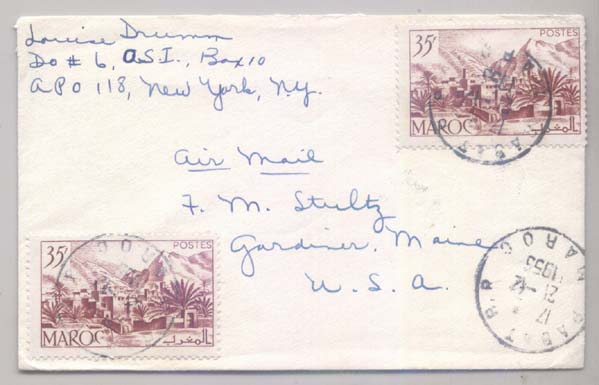 Louise Drumm
DO # 6, OSI., Box 10
APO 118, New York, N.Y.
35f
POSTES
MAROC
المغرب
Air Mail
F. M. Stultz
Gardiner, Maine
U. S. A.
35f
POSTES
MAROC
المغرب
RABAT R.P.
17
21-12
1953
MAROC